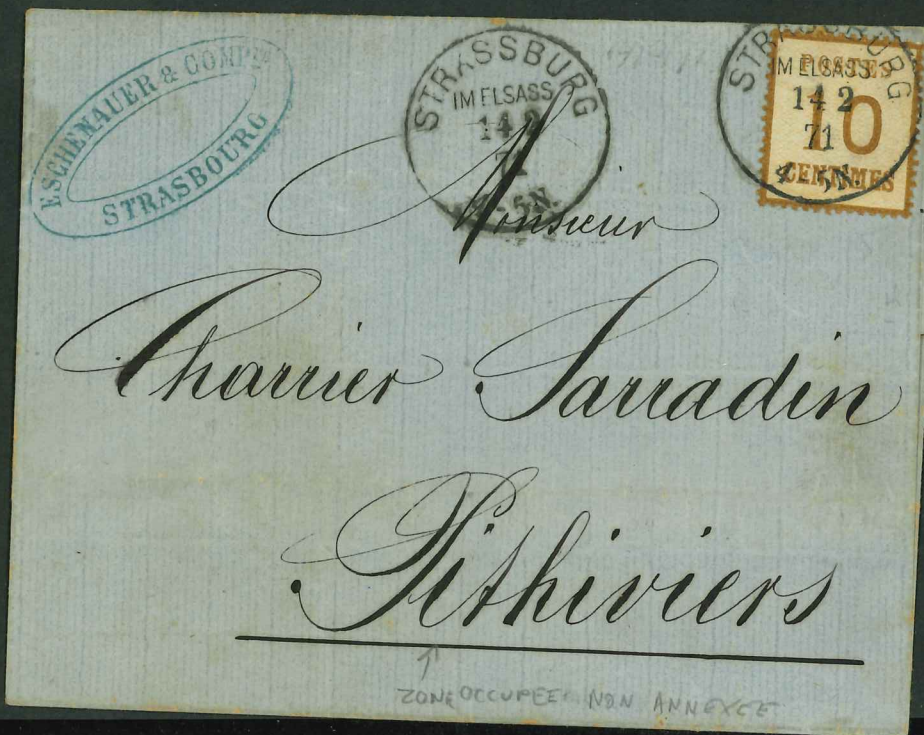 ESCHENAUER & COMPIE
STRASBOURG
STRASSBURG
IM ELSASS
14 2
71
4-5N.
STRASSBURG
IM ELSASS
14 2
71
4-5N.
POSTES
10
CENTIMES
Monsieur
Charrier Sarradin
Pithiviers
ZONE OCCUPEE NON ANNEXEE